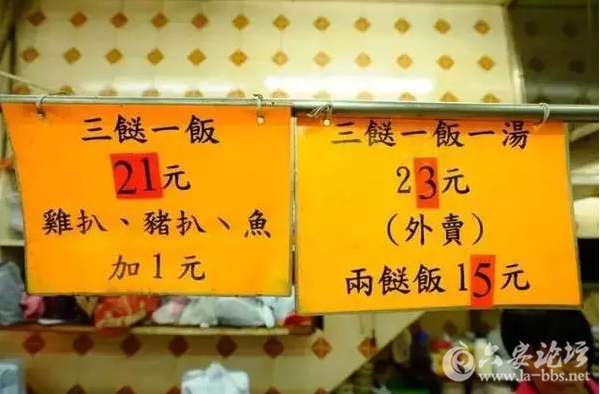 三餸一飯
21元
雞扒、豬扒、魚
加1元
三餸一飯一湯
23元
(外賣)
兩餸飯15元
六安论坛
www.la-bbs.net